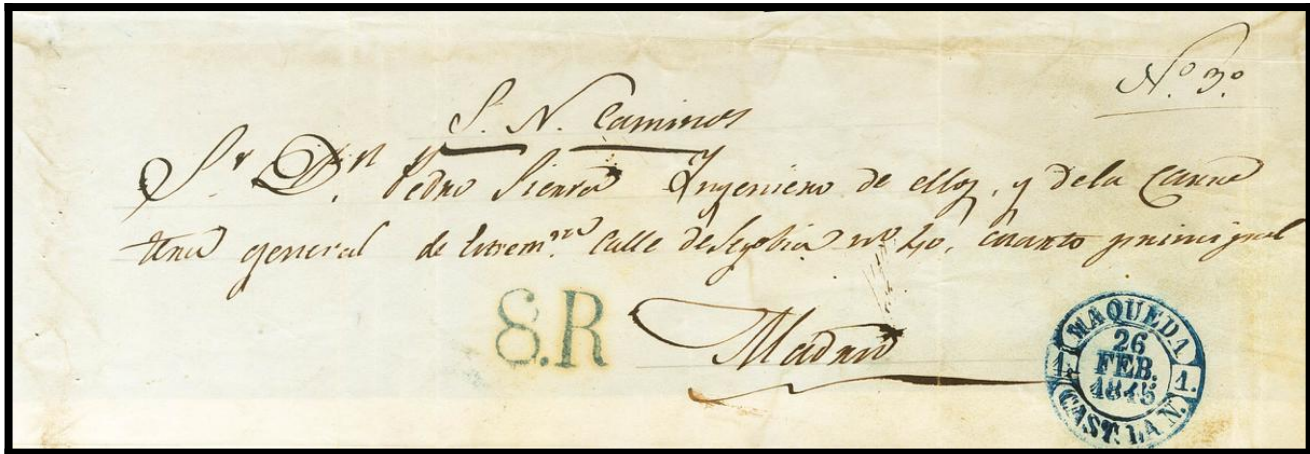 Nº. 3º.
S. N. Caminos
Sr. Dn. Pedro Sierra Ingeniero de ellos, y dela Carre
tera general de Estremra. Calle de Segobia nº 40, cuarto principal
8.R
Madrid
MAQUEDA
26
FEB.
1845
1. 1.
CAST. LA N.